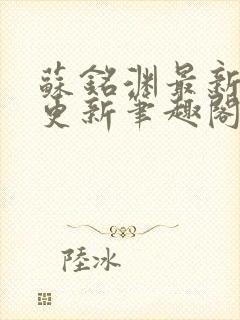 蘇銘淵最新
更新筆趣閣
陸冰